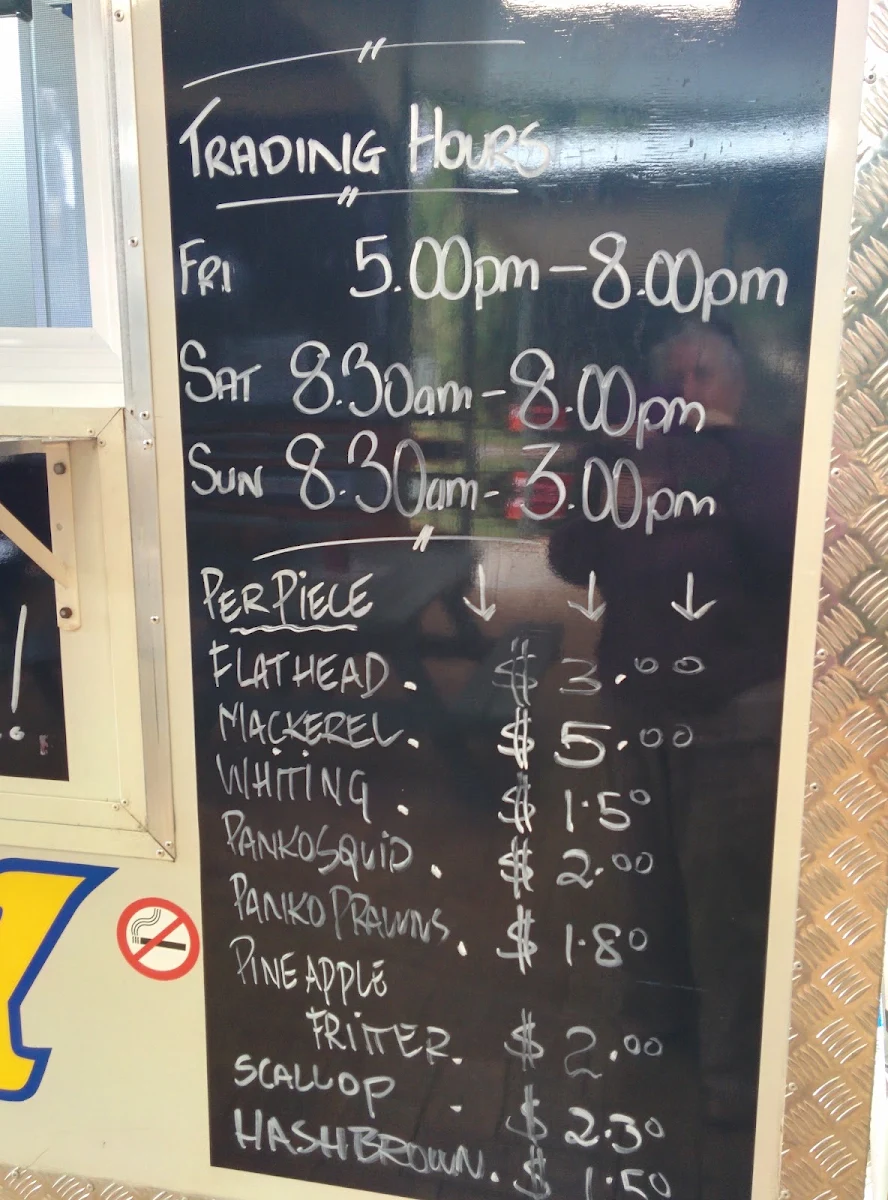 TRADING HOURS
FRI 5.00pm - 8.00pm
SAT 8.30am - 8.00pm
SUN 8.30am - 3.00pm
PER PIECE ↓ ↓ ↓
FLATHEAD. $3.00
MACKEREL. $5.00
WHITING. $1.50
PANKO SQUID. $2.00
PANKO PRAWNS. $1.80
PINEAPPLE
FRITTER. $2.00
SCALLOP - $2.30
HASHBROWN. $1.50